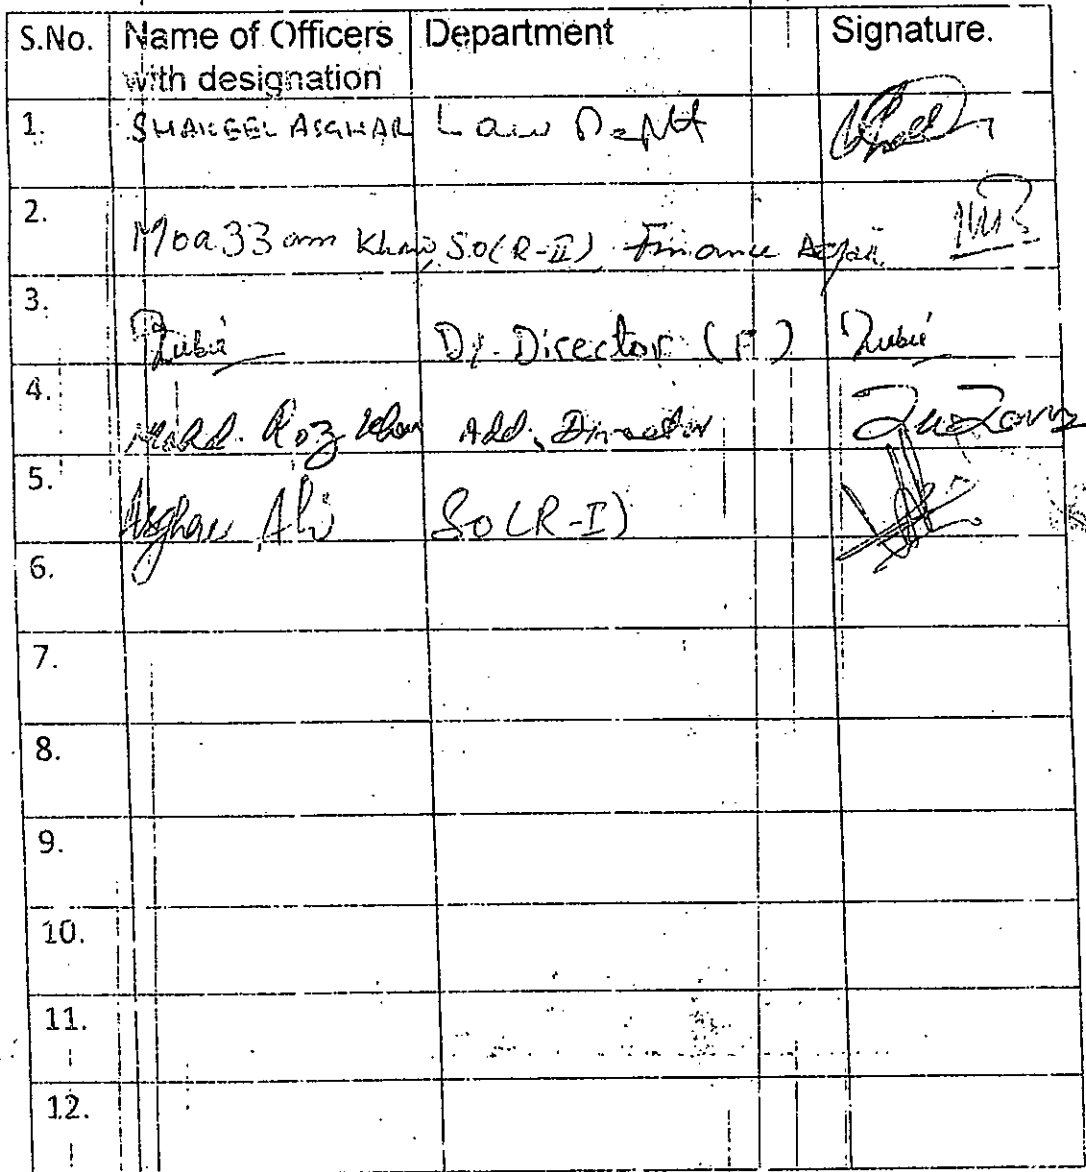 S.No. Name of Officers with designation Department Signature.
1. SHAKEEL ASGHAR Law Deptt
2. Moazzam Khan, SO(R-II) Finance
3. Dy. Director (F)
4. Mohd. Roz Khan Add, Director
5. Asghar Ali SO(R-I)
6.
7.
8.
9.
10.
11.
12.